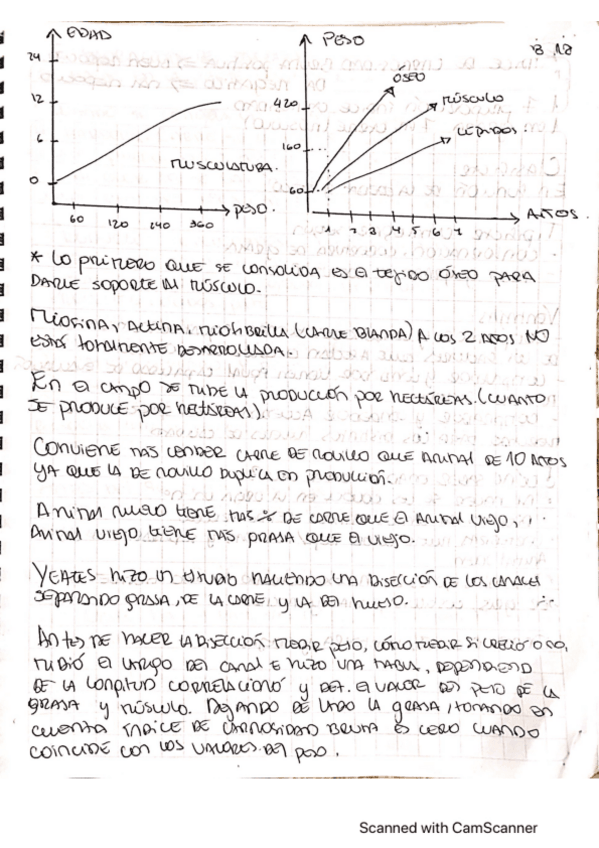 EDAD
24
12
6
0
60 120 240 360
PESO.
MUSCULATURA.
PESO
420
160
60
ÓSEO
MÚSCULO
LÍPIDOS
1 2 3 4 5 6 7
AÑOS
* LO PRIMERO QUE SE CONSOLIDA ES EL TEJIDO ÓSEO PARA
DARLE SOPORTE AL MÚSCULO.
MIOSINA, ACTINA, MIOFIBRILLA (CARNE BLANDA) A LOS 2 AÑOS NO
ESTÁ TOTALMENTE DESARROLLADA.
EN EL CAMPO SE MIDE LA PRODUCCIÓN POR HECTÁREAS. (CUANTO
SE PRODUCE POR HECTÁREAS).
CONVIENE MÁS VENDER CARNE DE NOVILLO QUE ANIMAL DE 10 AÑOS
YA QUE LA DE NOVILLO DUPLICA EN PRODUCCIÓN.
ANIMAL NUEVO TIENE MAS % DE CARNE QUE EL ANIMAL VIEJO,
ANIMAL VIEJO TIENE MÁS GRASA QUE EL VIEJO.
YEATES HIZO UN ESTUDIO HACIENDO UNA DISECCIÓN DE LOS CANALES
SEPARANDO GRASA, DE LA CARNE Y LA DEL HUESO.
ANTES DE HACER LA DISECCIÓN MEDIR PESO, CÓMO MEDIR SI CRECIÓ O NO,
MIDIÓ EL LARGO DEL CANAL E HIZO UNA TABLA, DEPENDIENDO
DE LA LONGITUD CORRELACIONÓ Y DET. EL VALOR DEL PESO DE LA
GRASA Y MÚSCULO. DEJANDO DE LADO LA GRASA, TOMANDO EN
CUENTA ÍNDICE DE CARNOSIDAD BRUTA ES CERO CUANDO
COINCIDE CON LOS VALORES DEL PESO.
Scanned with CamScanner